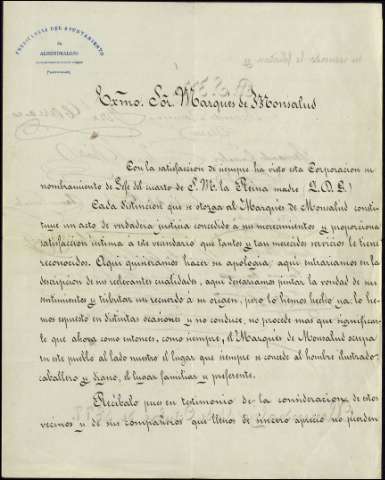 PRESIDENCIA DEL AYUNTAMIENTO
DE
ALMENDRALEJO
Exmo. Sōr. Marques de Monsalud
Con la satisfaccion de siempre ha visto esta Corporacion su
nombramiento de Gefe del cuarto de S. M. la Reina madre (Q.D.G.)
Cada distincion que se otorga al Marqués de Monsalud consti-
tuye un acto de verdadera justicia concedido á sus merecimientos y proporciona
satisfaccion íntima á este vecindario que tantos y tan merecidos servicios le tiene
reconocidos. Aquí quisieramos hacer su apologia, aquí entrariamos en la
descripcion de sus relevantes cualidades, aquí desearíamos juntar la bondad de sus
sentimientos y tributar un recuerdo á su origen, pero lo hemos hecho ya: lo he-
mos espuesto en distintas ocasiones y no conduce, no procede mas que significar-
le que ahora como entonces, como siempre, el Marqués de Monsalud ocupa
en este pueblo al lado nuestro el lugar que siempre se concede al hombre ilustrado,
caballero y digno, el lugar familiar y preferente.
Recíbalo pues en testimonio de la consideracion de estos
vecinos y de sus compañeros que llenos de sincero aprecio no pierden